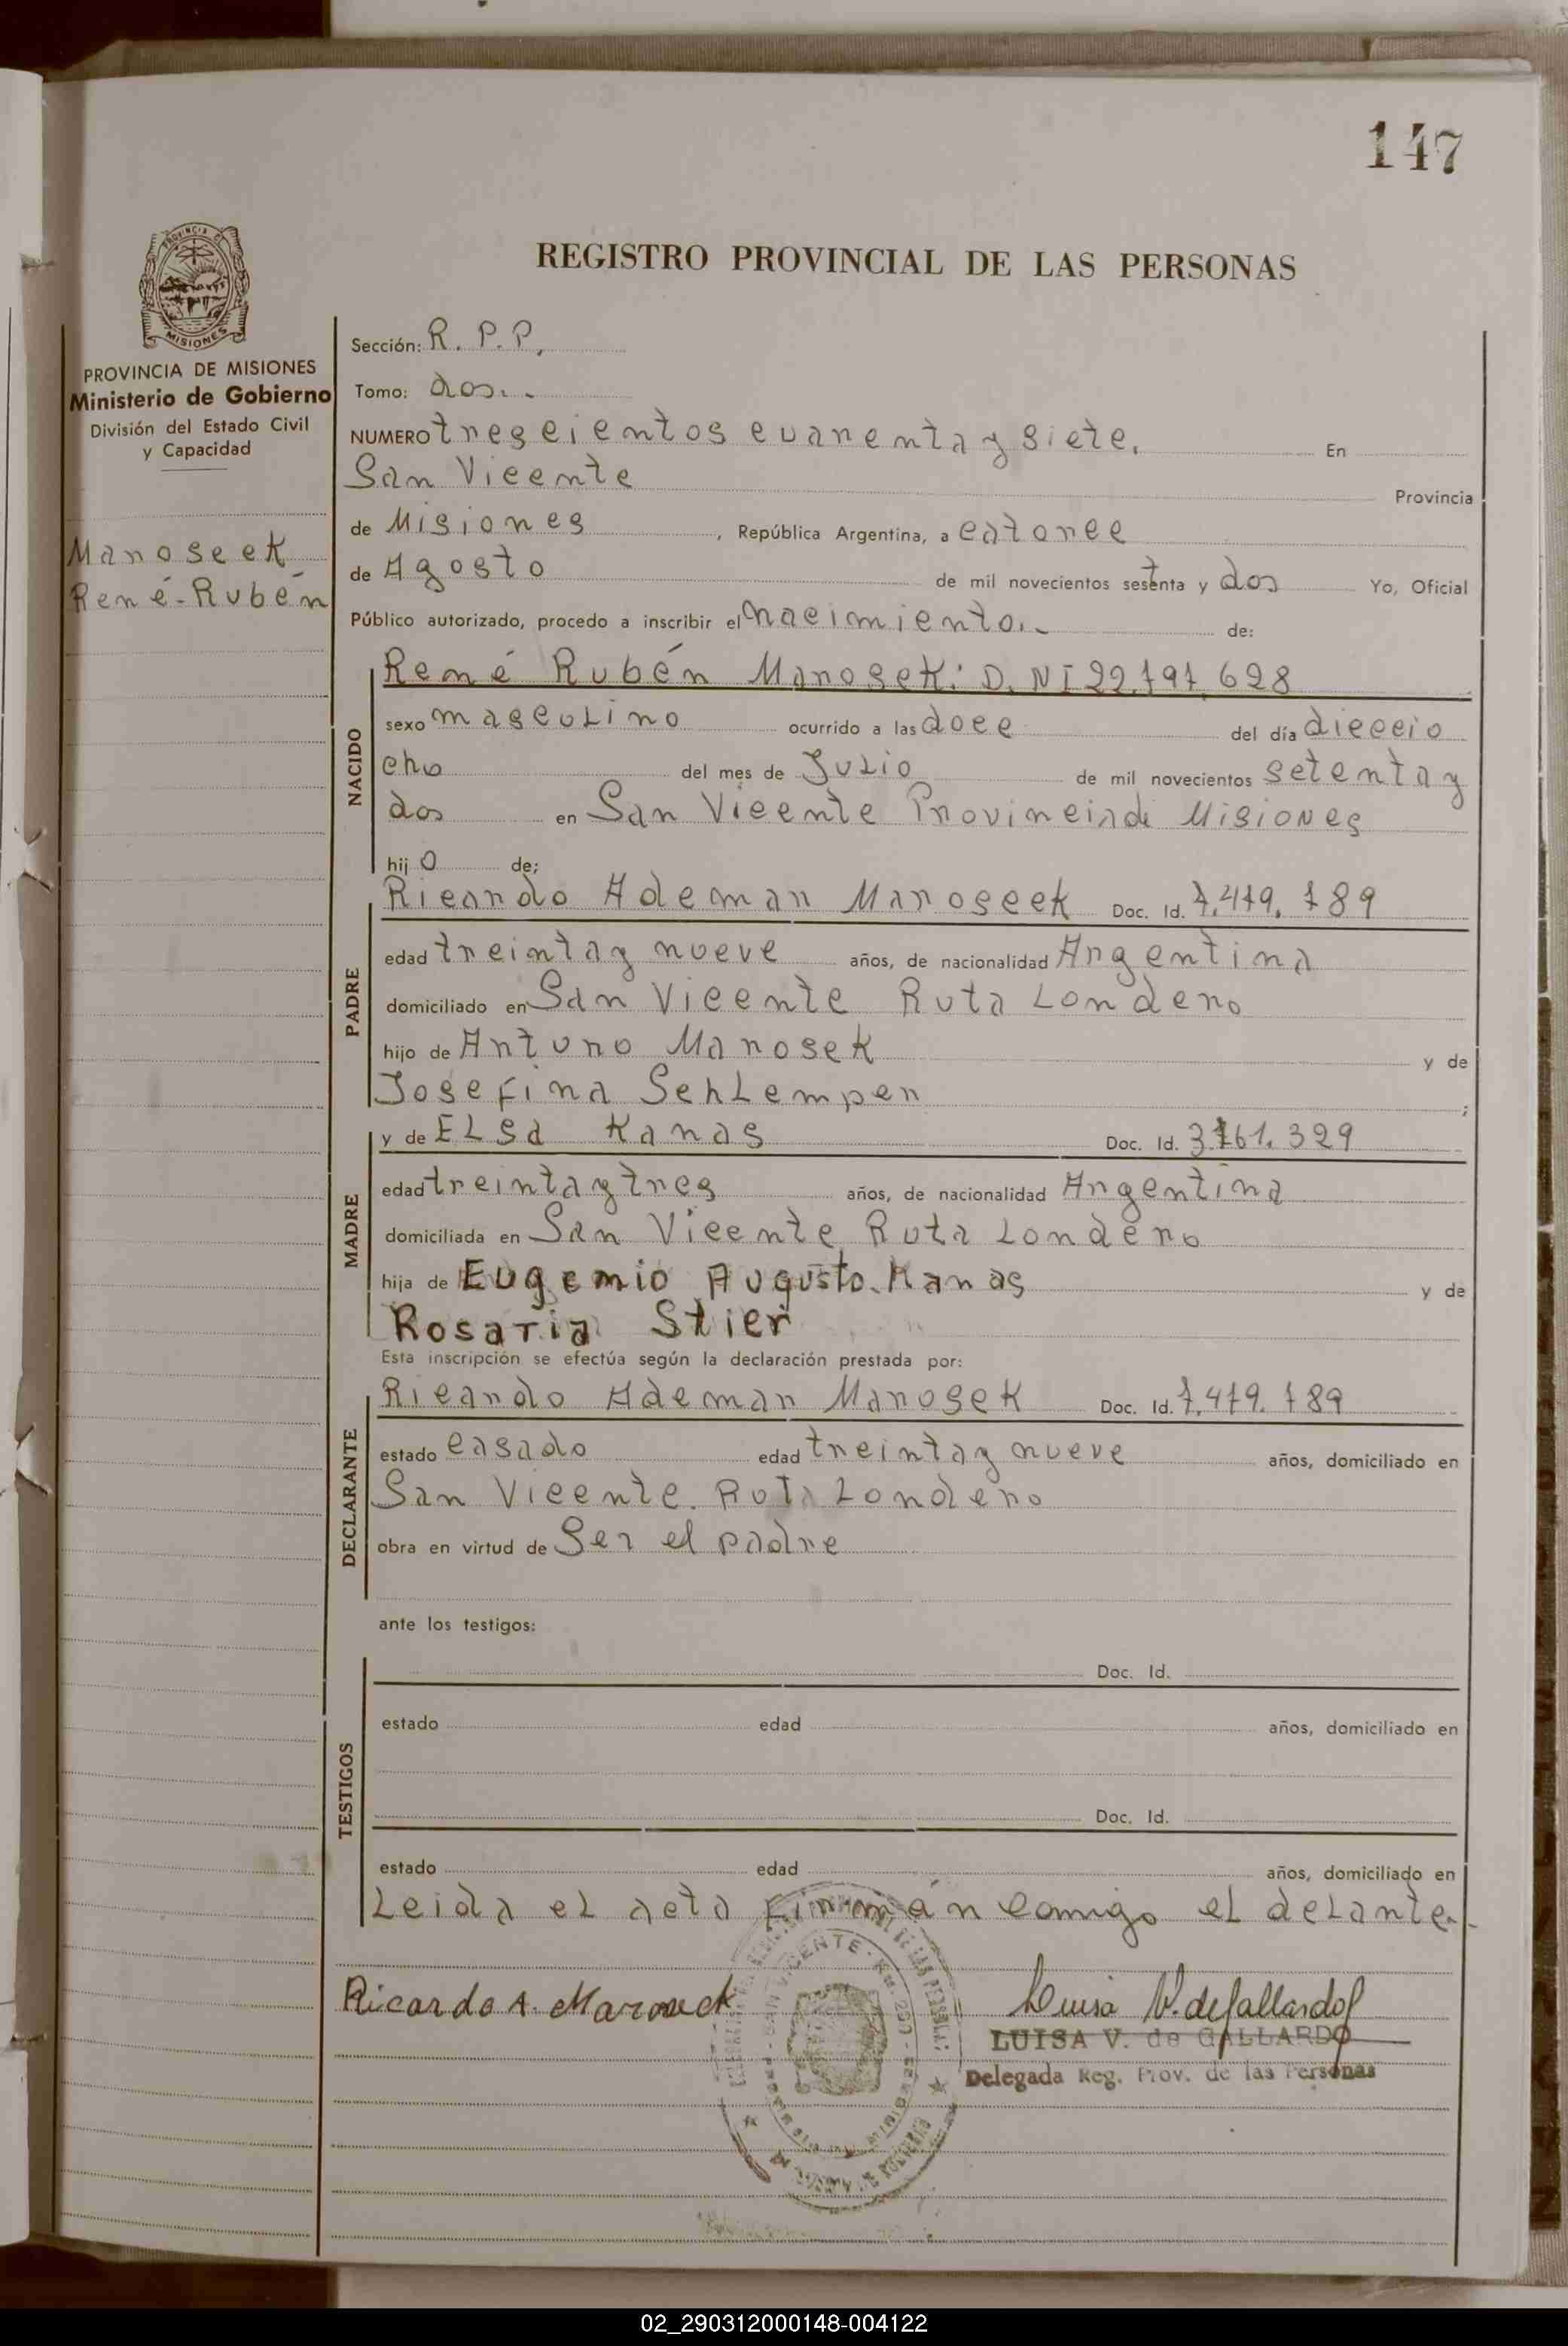 147
REGISTRO PROVINCIAL DE LAS PERSONAS
PROVINCIA DE MISIONES
Ministerio de Gobierno
División del Estado Civil
y Capacidad
Maroseck
René-Rubén
Sección: R. P. P.
Tomo: dos.
NUMERO trescientos cuarenta y siete. En
San Vicente Provincia
de Misiones, República Argentina, a catorce
de Agosto de mil novecientos setenta y dos Yo, Oficial
Público autorizado, procedo a inscribir el nacimiento.. de:
NACIDO
René Rubén Marosek: D. NI 22.791.628
sexo masculino ocurrido a las doce del día diecio
cho del mes de Julio de mil novecientos setenta y
dos en San Vicente Provincia de Misiones
hijo de;
PADRE
Ricardo Ademar Maroseck Doc. Id. 7.479.789
edad treinta y nueve años, de nacionalidad Argentina
domiciliado en San Vicente Ruta Londero
hijo de Arturo Marosek y de
Josefina Schlemper ;
MADRE
y de ELsa Karas Doc. Id. 3.161.329
edad treinta y tres años, de nacionalidad Argentina
domiciliada en San Vicente Ruta Londero
hija de Eugenio Augusto Karas y de
Rosaria Stier
Esta inscripción se efectúa según la declaración prestada por:
DECLARANTE
Ricardo Ademar Marosek Doc. Id. 7.479.789
estado casado edad treinta y nueve años, domiciliado en
San Vicente. Ruta Londero
obra en virtud de Ser el padre
ante los testigos:
TESTIGOS
Doc. Id.
estado edad años, domiciliado en
Doc. Id.
estado edad años, domiciliado en
Leida el acta Firmán comigo el deLante.
Ricardo A. Maroseck
Luisa V. de Gallardo
LUISA V. de GALLARDO
Delegada Reg. Prov. de las Personas
02_290312000148-004122